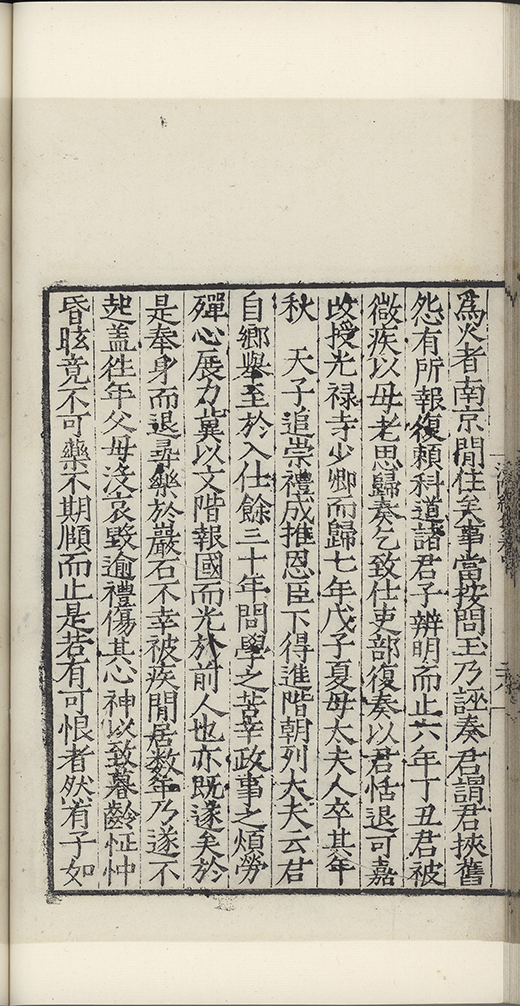 爲災者南京閒住矣事當按問王乃誣奏君謂君挾舊
怨有所報復賴科道諸君子辨明而止六年丁丑君被
微疾以母老思歸奏乞致仕吏部復奏以君恬退可嘉
改授光禄寺少卿而歸七年戊子夏母太夫人卒其年
秋　天子追崇禮成推恩臣下得進階朝列大夫云君
自鄉舉至於入仕餘三十年問學之苦辛政事之煩勞
殫心展力冀以文階報國而光於前人也亦旣遂矣於
是奉身而退尋樂於巖石不幸被疾閒居数年乃遂不
起盖徃年父母没哀毁逾禮傷其心神以致暮齡怔忡
昏眩竟不可藥不期頤而止是若有可恨者然有子如